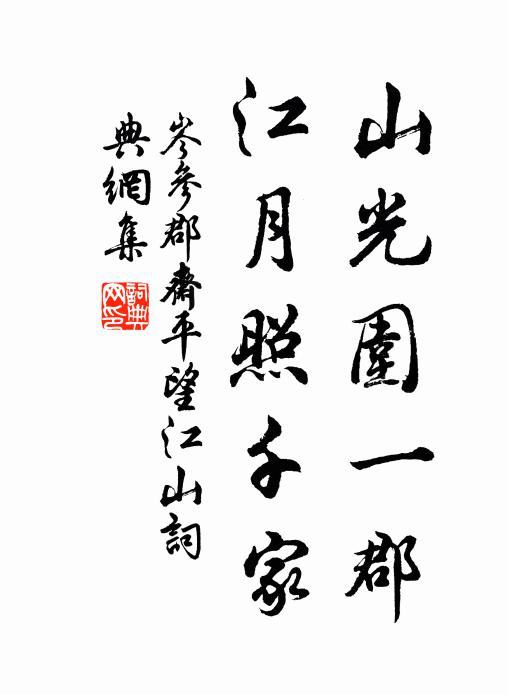 山光圍一郡
江月照千家
岑參郡齋平望江山詞
典網集
詞典
网印